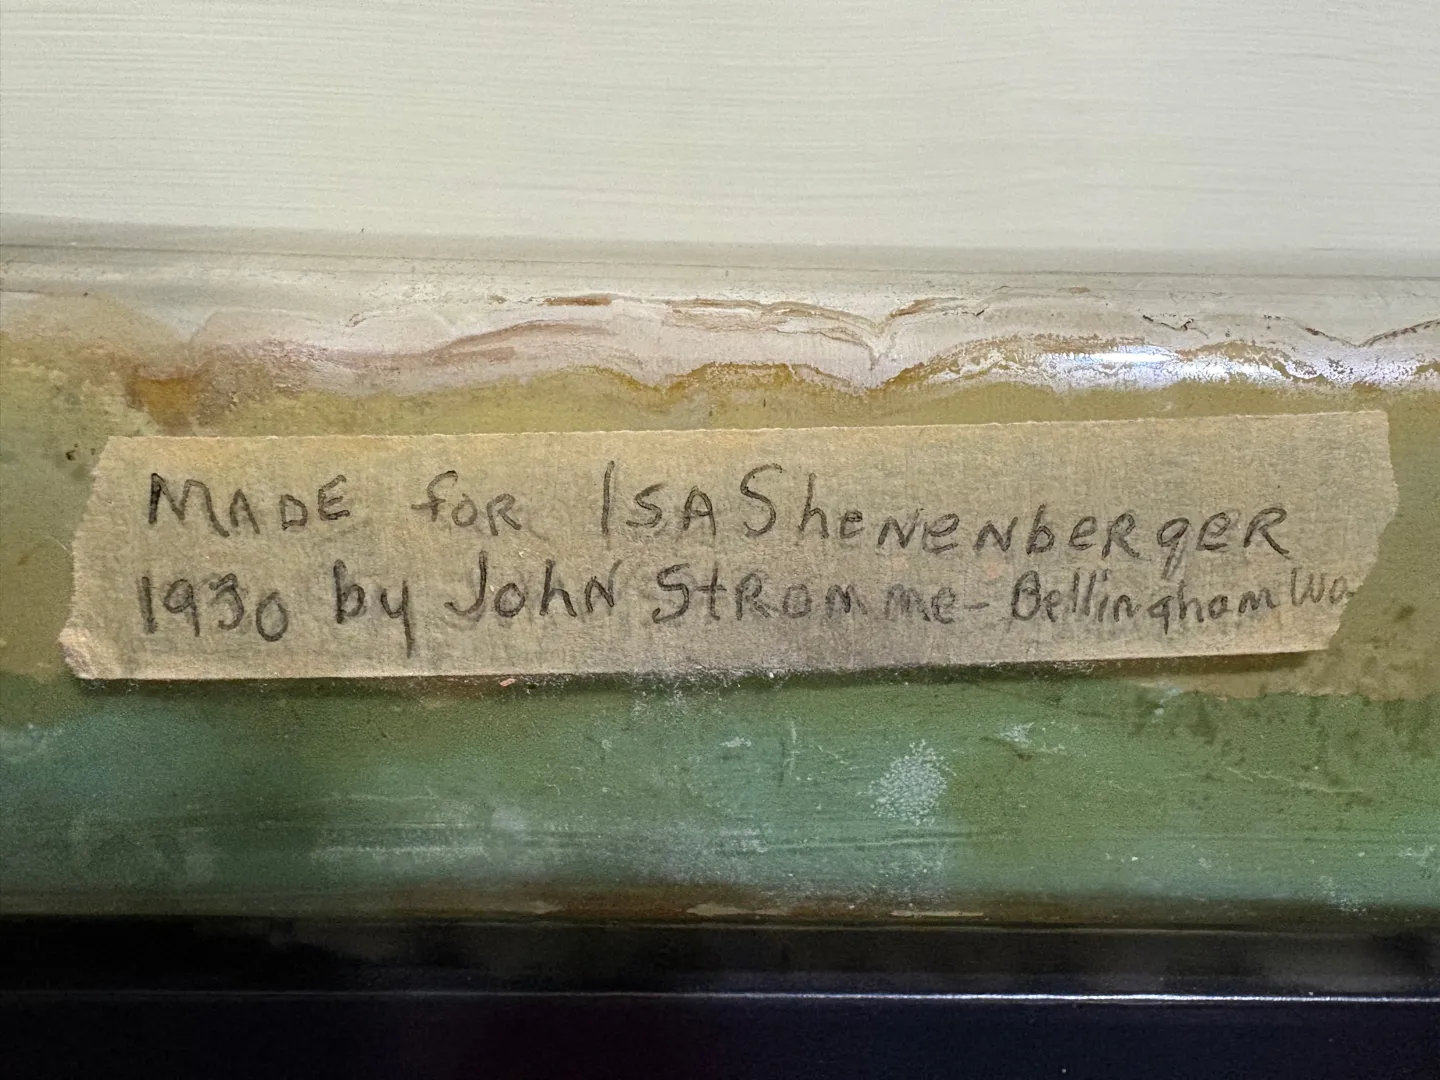 MADE for ISA ShenenbeRgeR
1930 by John Stromme - Bellingham Wa.